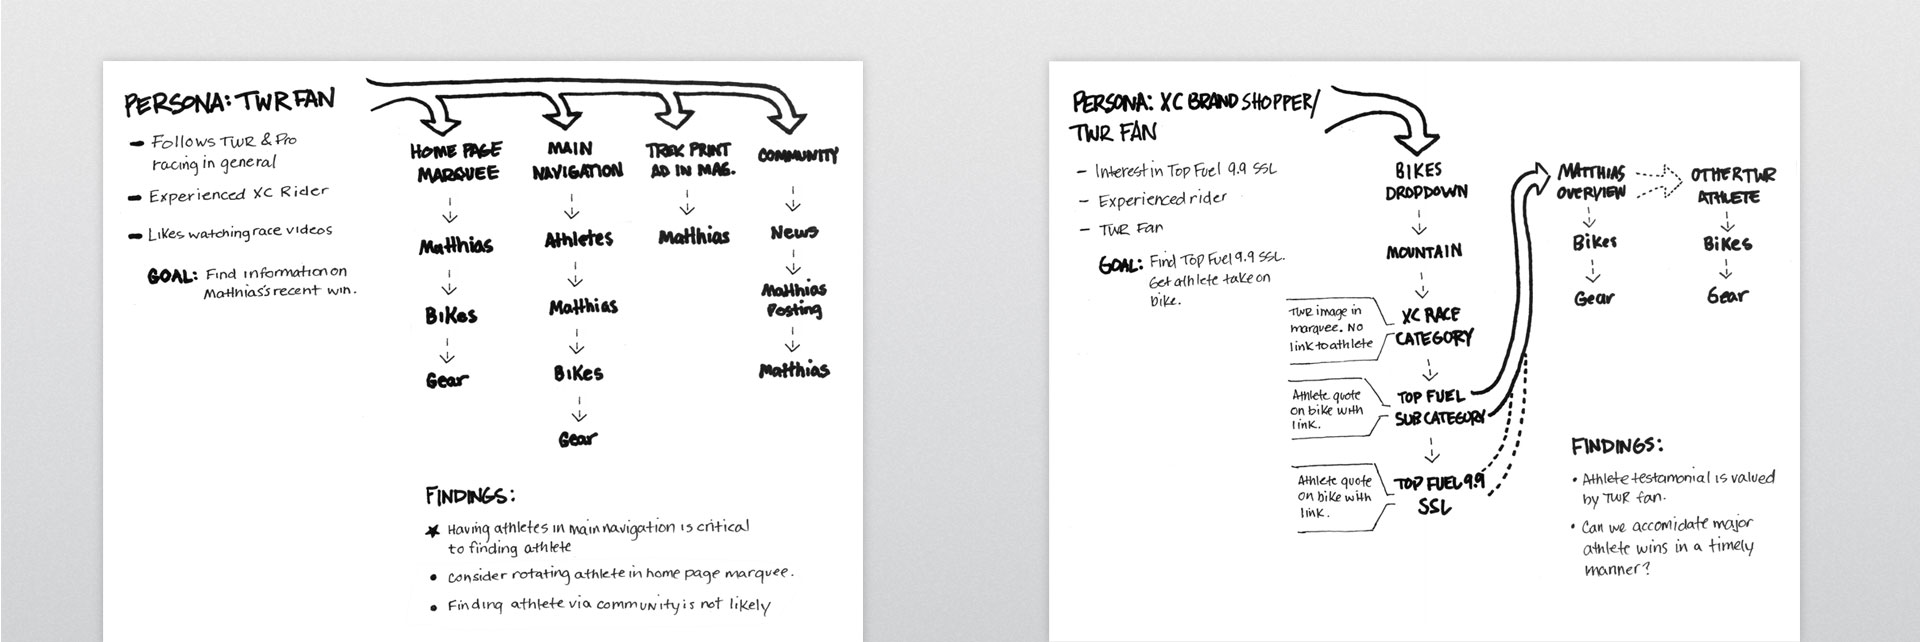 PERSONA: TWR FAN
- Follows TWR & Pro
racing in general
- Experienced XC Rider
- Likes watching race videos
GOAL: Find information on
Matthias's recent win.
HOME PAGE
MARQUEE
Matthias
Bikes
Gear
MAIN
NAVIGATION
Athletes
Matthias
Bikes
Gear
TREK PRINT
AD IN MAG.
Matthias
COMMUNITY
News
Matthias
Posting
Matthias
FINDINGS:
★ Having athletes in main navigation is critical
to finding athlete
• Consider rotating athlete in home page marquee.
• Finding athlete via community is not likely
PERSONA: XC BRAND SHOPPER/
TWR FAN
- Interest in Top Fuel 9.9 SSL
- Experienced rider
- TWR Fan
GOAL: Find Top Fuel 9.9 SSL.
Get athlete take on
bike.
BIKES
DROPDOWN
MOUNTAIN
XC RACE
CATEGORY
TWR image in
marquee. No
link to athlete
TOP FUEL
SUBCATEGORY
Athlete quote
on bike with
link.
TOP FUEL 9.9
SSL
Athlete quote
on bike with
link.
MATTHIAS
OVERVIEW
Bikes
Gear
OTHER TWR
ATHLETE
Bikes
Gear
FINDINGS:
• Athlete testamonial is valued
by TWR fan.
• Can we accomidate major
athlete wins in a timely
manner?